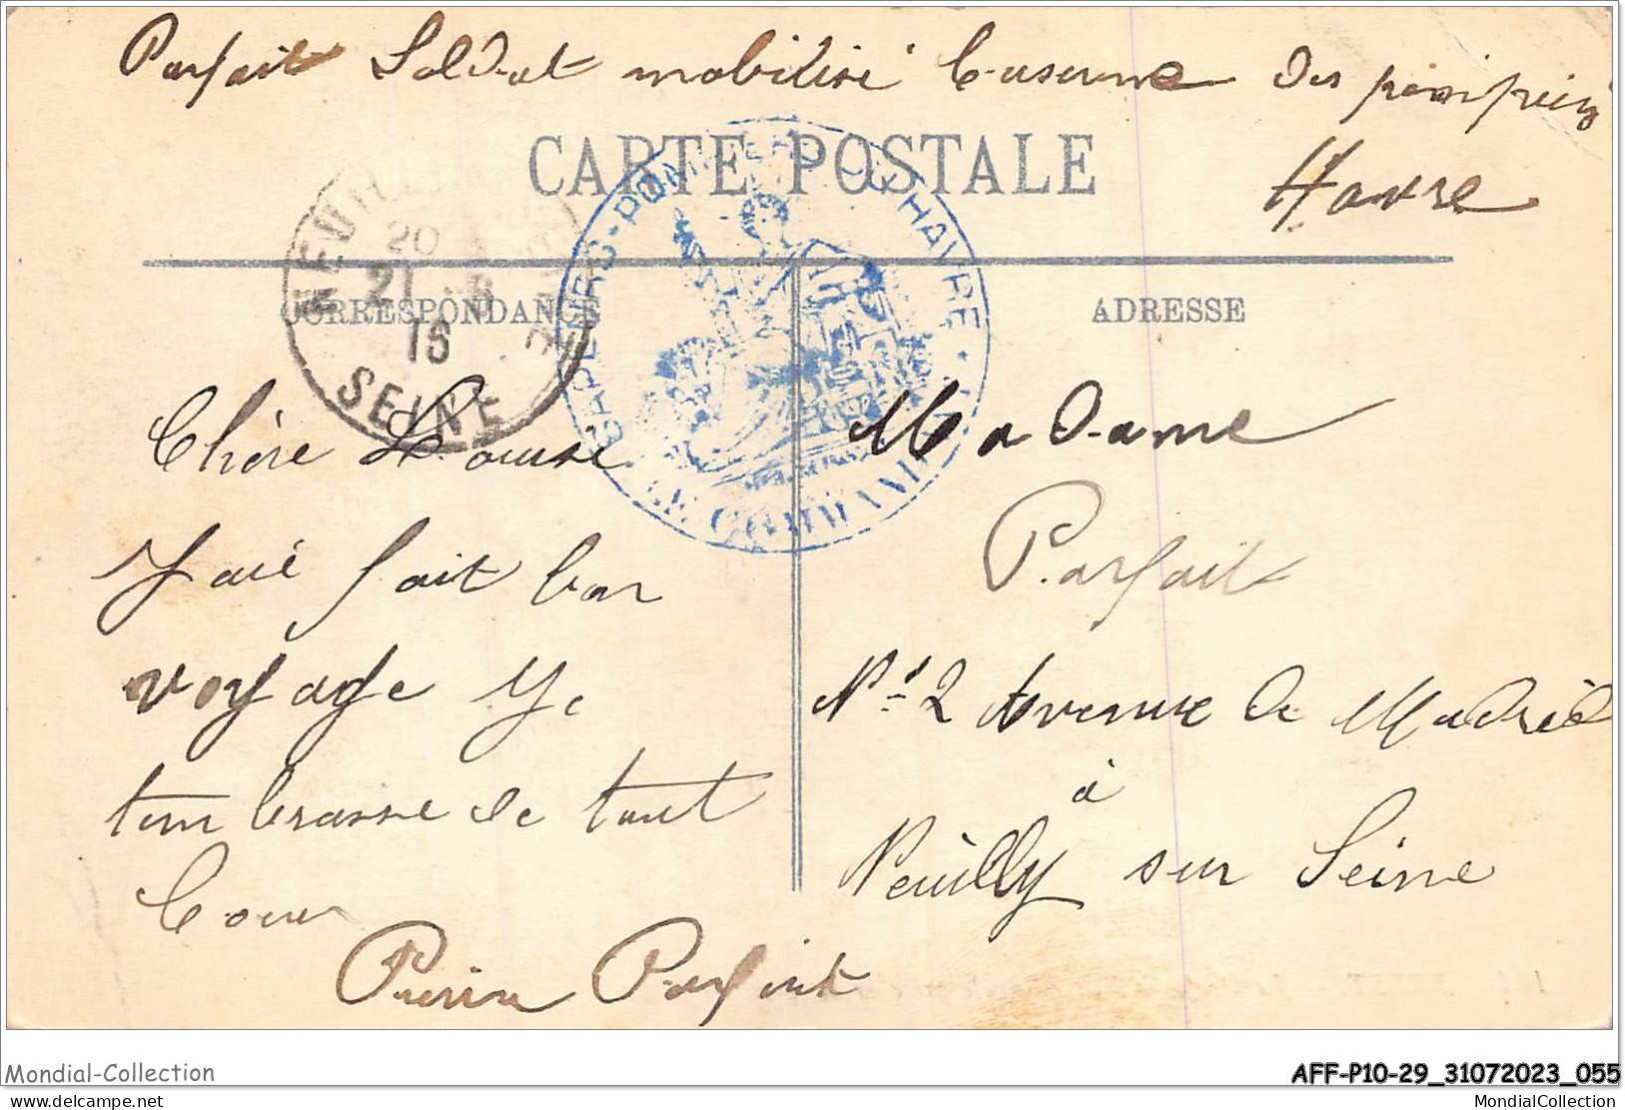 Parfait Soldat mobilisé Caserne des pompiers
Havre
CARTE POSTALE
CORRESPONDANCE
ADRESSE
20
21
16
SEINE
SAPEURS-POMPIERS DU HAVRE
LE COMMANDANT
Chère Louise
J'aié fait bon
voyage Je
tem brasse de tout
Coeur
Pierre Parfait
Madame
Parfait
No 2 Avenue de Madrid
à
Neuilly sur Seine
Mondial-Collection
AFF-P10-29_31072023_055
delcampe.net
MondialCollection